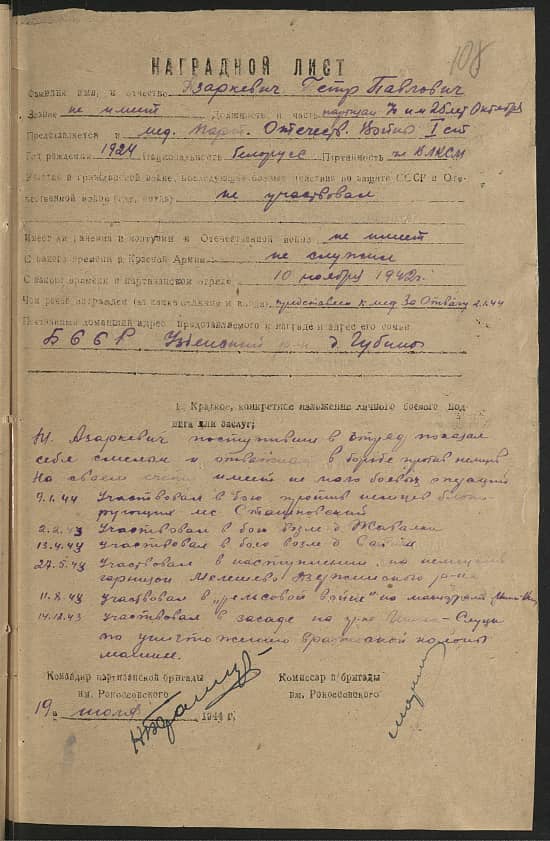 108
НАГРАДНОЙ ЛИСТ
Фамилия имя, и отчество Азаркевич Петр Павлович
Звание не имеет Должность и часть партизан им 25 лет Октября
Представляется к мед. Парт. Отечеств. Войны I ст
Год рождения 1924 Национальность белорус Партийность чл ВЛКСМ
Участие в гражданской войне, последующие боевые действия по защите СССР и Оте-
чественной войне не участвовал
Имеет ли ранения и контузии в Отечественной войне не имеет
С какого времени в Красной Армии не служил
С какого времени в партизанском отряде 10 ноября 1942г.
Чем ранее награжден (за какие отличия и когда) представлен к мед За Отвагу 2.1.44
Постоянный домашний адрес представляемого к награде и адрес его семьи
БССР Узденский р-н д. Губино
1. Краткое, конкретное изложение личного боевого под-
вига или заслуг;
Азаркевич поступивши в отряд показал
себя смелым и отважным в борьбе против немцев
На своем счету имеет не мало боевых операций
Участвовал в бою против немцев блоки-
рующих мс
2.2.43 Участвовал в бою возле д Жавалки
13.4.43 Участвовал в бою возле д
Участвовал в наступлении на немецкий
гарнизон
11.8.43 участвовал в „рельсовой войне" на
участвовал в засаде на ш-се Слуцк
по уничтожению вражеской колонны
машин.
Командир партизанской бригады Комиссар п/бригады
им. Рокоссовского им. Рокоссовского
19 июля 1944 г.